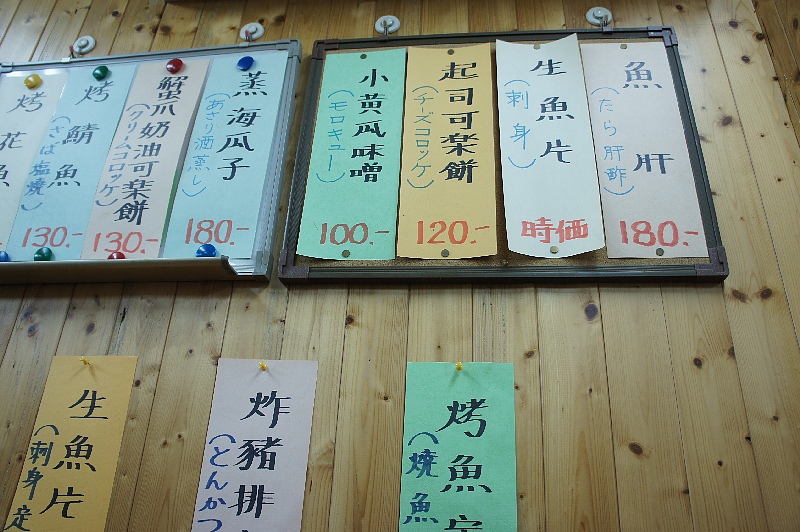 魚肝
(たら肝酢)
180.-
生魚片
(刺身)
時価
起司可楽餅
(チーズコロッケ)
120.-
小黄瓜味噌
(モロキュー)
100.-
蒸海瓜子
(あさり酒蒸し)
180.-
蟹爪奶油可楽餅
(クリームコロッケ)
130.-
烤鯖魚
(さば塩焼)
130.-
烤花魚
烤魚定
(焼魚
炸豬排
(とんかつ
生魚片
(刺身定